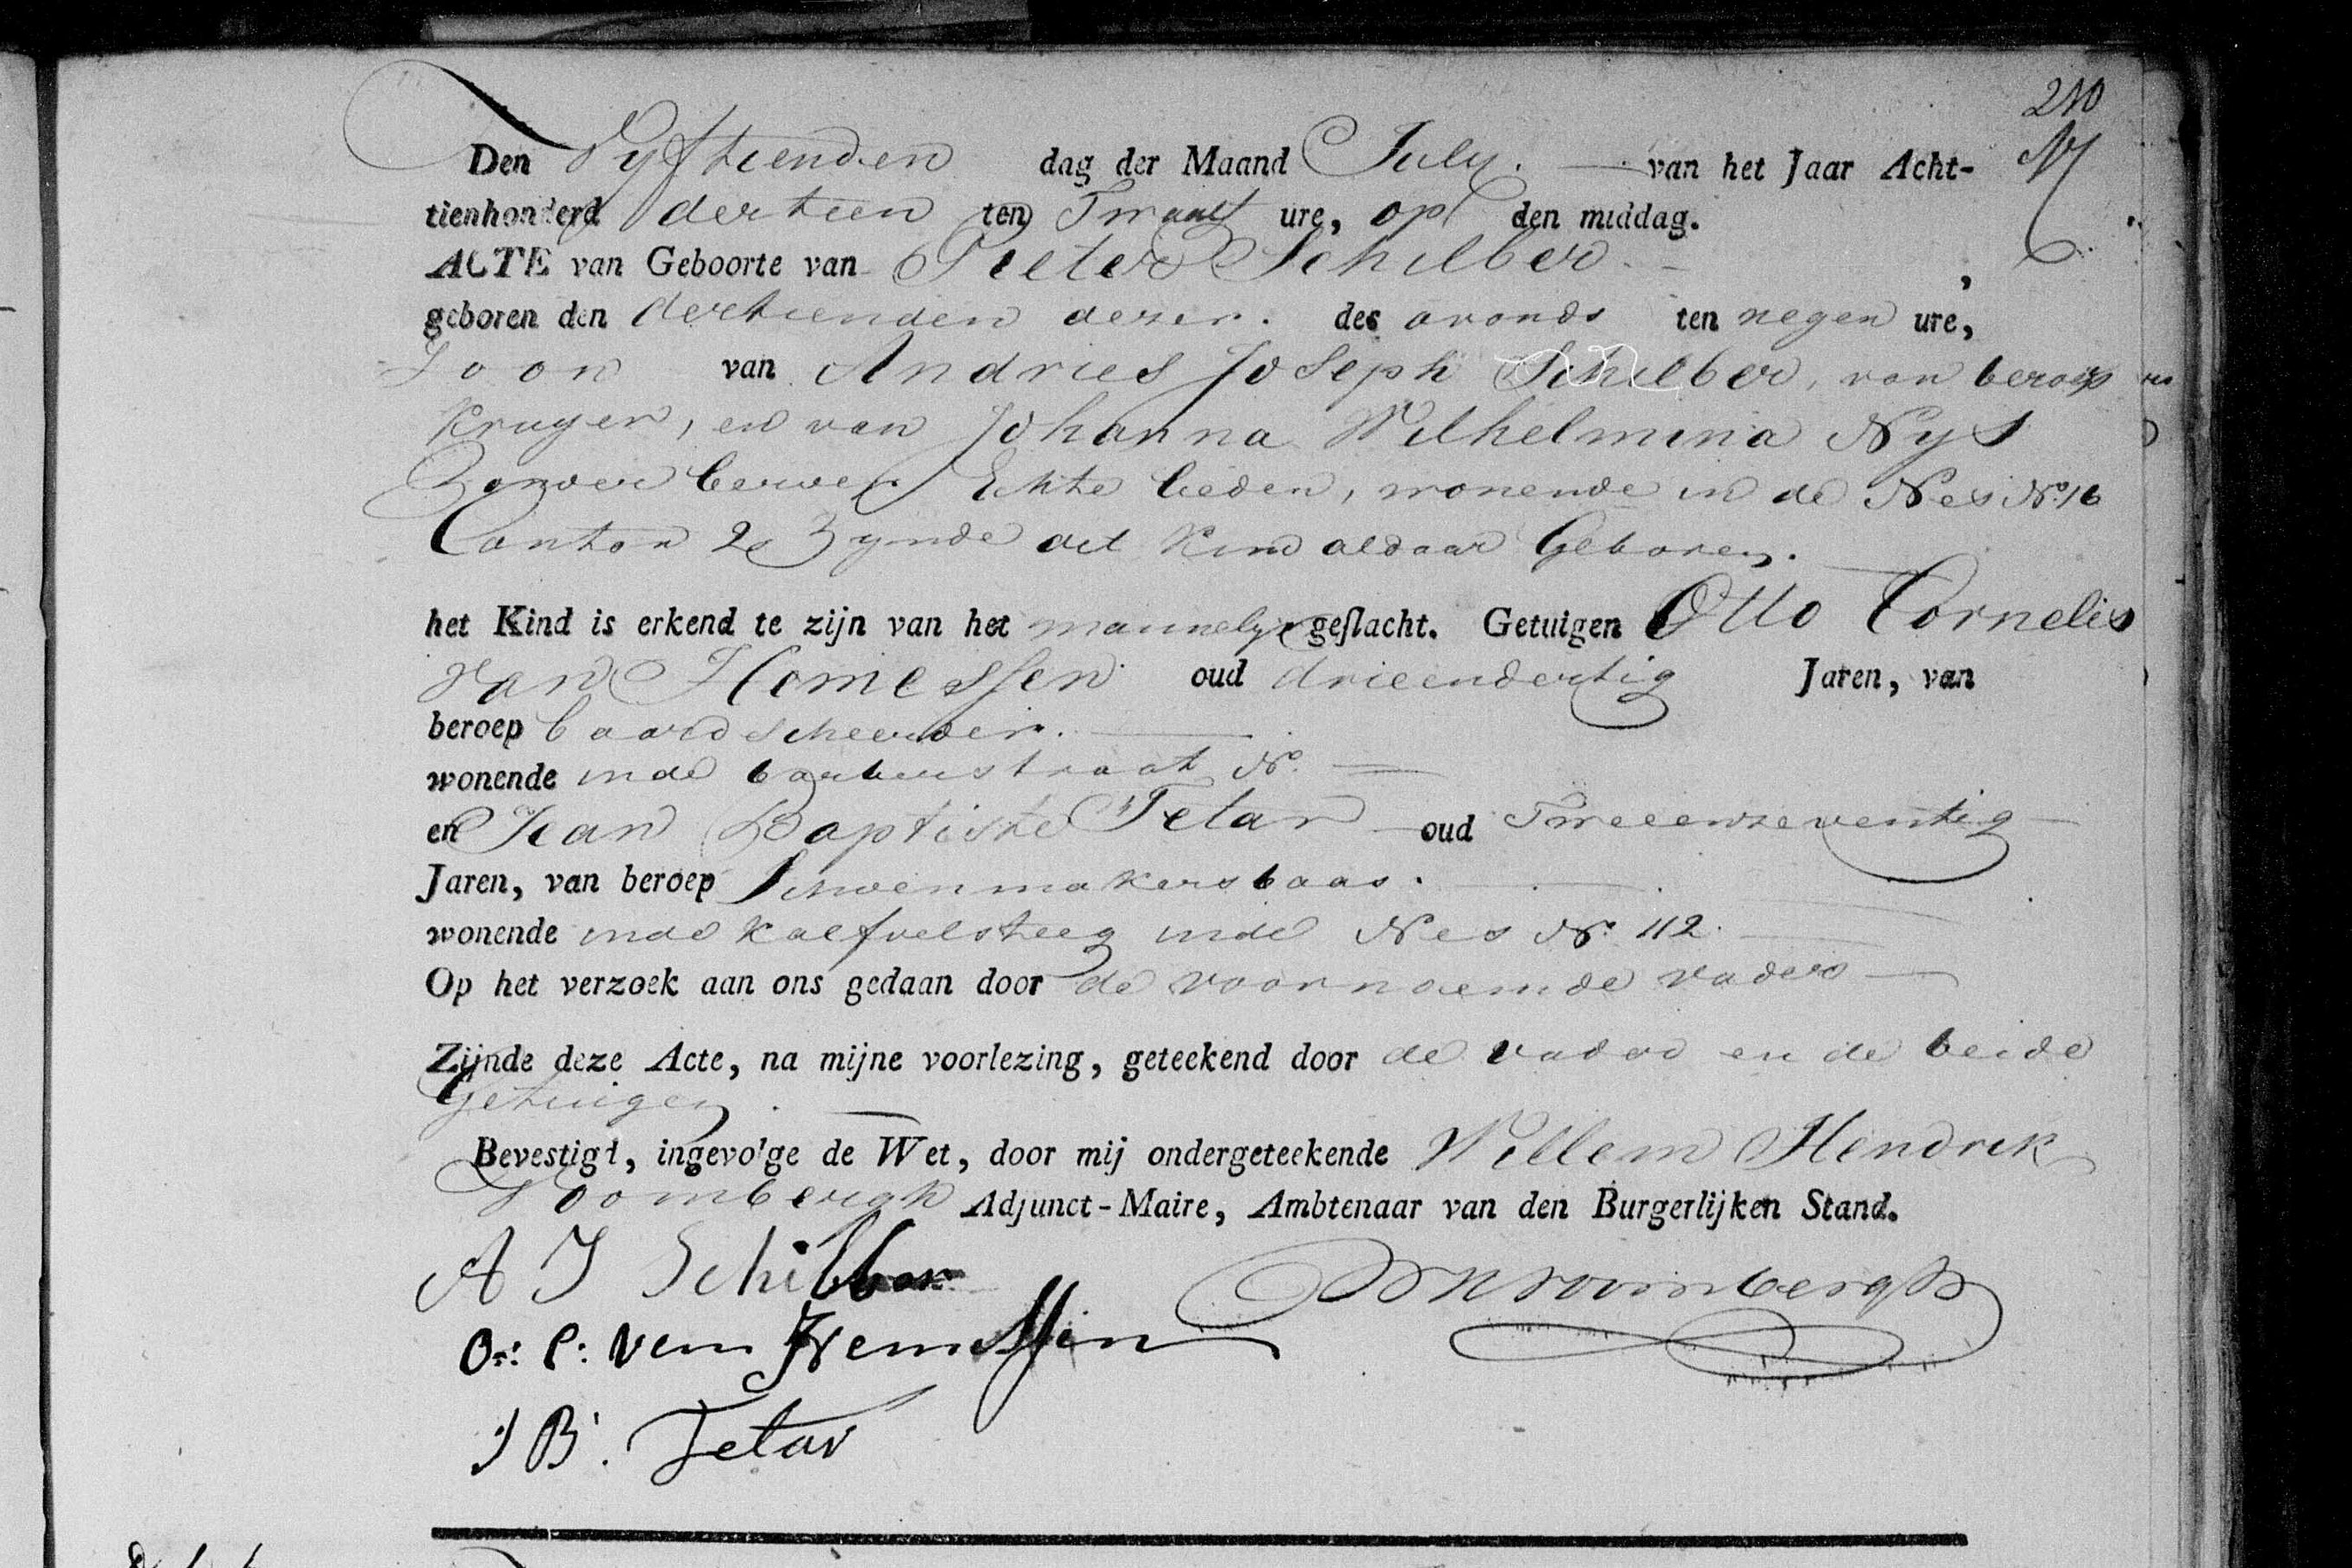 210
Den Vyftienden dag der Maand July. van het Jaar Acht-
tienhonderd dertien ten Twaalf ure, op den middag.
ACTE van Geboorte van Pieter Schilber ,
geboren den dertienden dezer. des avonds ten negen ure,
Zoon van Andries Joseph Schilber, van beroep
Kruyer, en van Johanna Wilhelmina Nys
Zonder beroep Echte lieden, wonende in de Nes No. 16
Canton 2e Zynde dit Kind aldaar Geboren.
het Kind is erkend te zijn van het mannelyk geslacht. Getuigen Otto Cornelis
van oud drieendertig Jaren, van
beroep baardscheerder.
wonende in de straat No.
en Jean Baptiste Tetar oud Tweeenzeventig
Jaren, van beroep Schoenmakersbaas.
wonende inde Kalfvelsteeg inde Nes No. 112.
Op het verzoek aan ons gedaan door de voornoemde vader
Zijnde deze Acte, na mijne voorlezing, geteekend door de vader en de beide
Getuigen.
Bevestigt, ingevolge de Wet, door mij ondergeteekende Willem Hendrik
Voombergh Adjunct-Maire, Ambtenaar van den Burgerlijken Stand.
A J Schilber
WHVoombergh
O: C: van
J B. Tetar